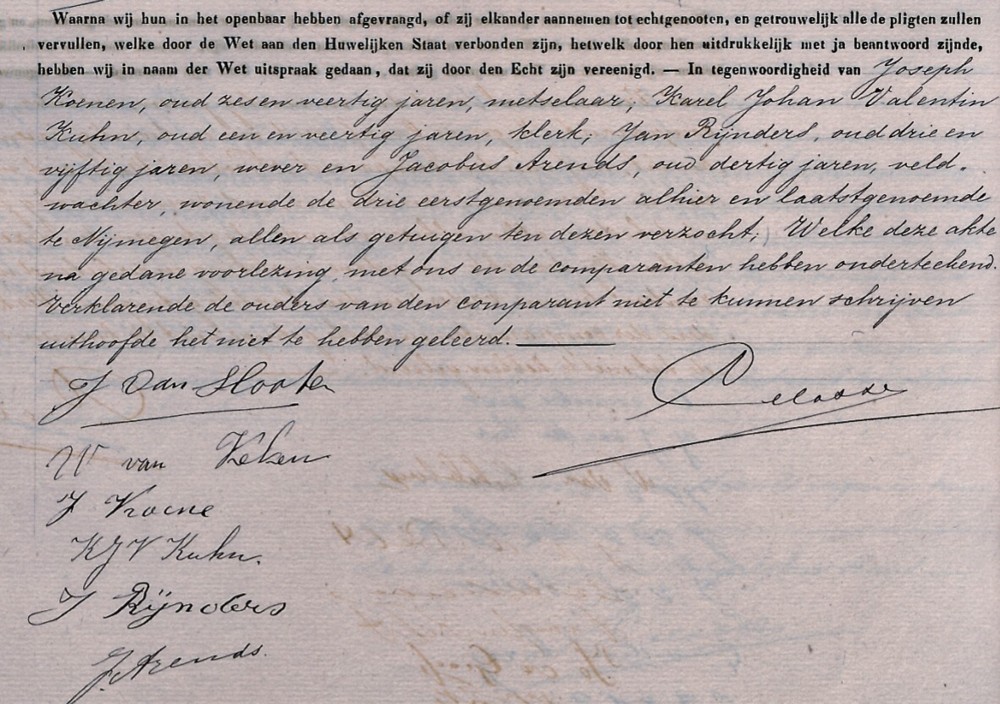 Waarna wij hun in het openbaar hebben afgevraagd, of zij elkander aannemen tot echtgenooten, en getrouwelijk alle de pligten zullen
vervullen, welke door de Wet aan den Huwelijken Staat verbonden zijn, hetwelk door hen uitdrukkelijk met ja beantwoord zijnde,
hebben wij in naam der Wet uitspraak gedaan, dat zij door den Echt zijn vereenigd. — In tegenwoordigheid van Joseph
Koenen, oud zes en veertig jaren, metselaar; Karel Johan Valentin
Kuhn, oud een en veertig jaren, klerk; Jan Rijnders, oud drie en
vijftig jaren, wever en Jacobus Arends, oud dertig jaren, veld-
wachter, wonende de drie eerstgenoemden alhier en laatstgenoemde
te Nijmegen, allen als getuigen ten dezen verzocht; Welke deze akte
na gedane voorlezing, met ons en de comparanten hebben onderteekend.
Verklarende de ouders van den comparant niet te kunnen schrijven
uithoofde het niet te hebben geleerd.
J van Slooten
W van Keken
J Koene
KJV Kuhn.
J Rijnders
J. Arends.